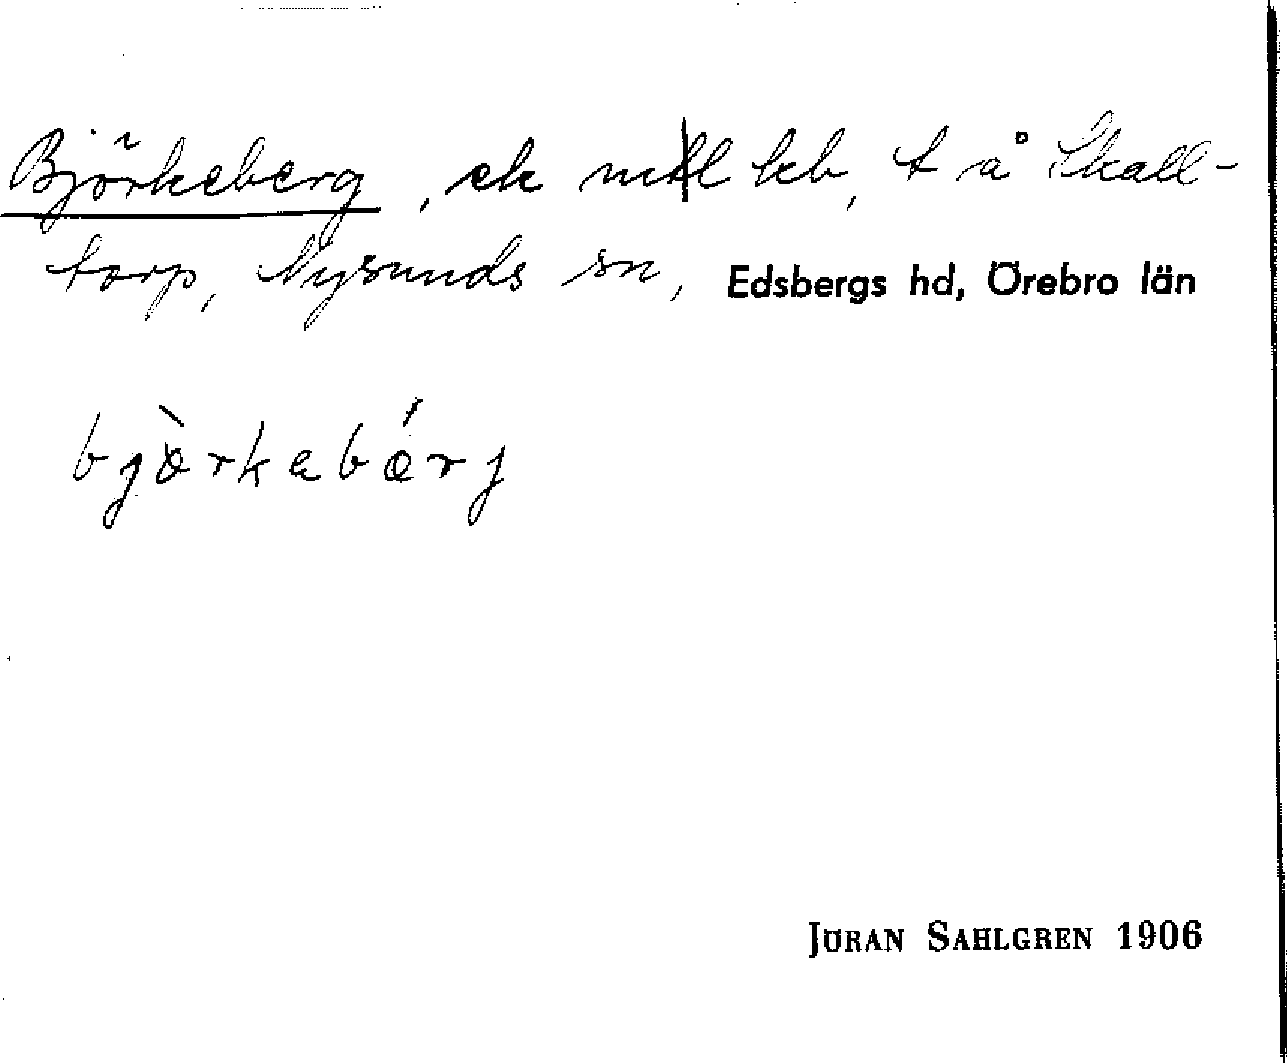 Björkeberg, ek mtl kb, t å Skall-
torp, Nysunds sn, Edsbergs hd, Örebro län
bjö̀rkebǽrj
JÖRAN SAHLGREN 1906